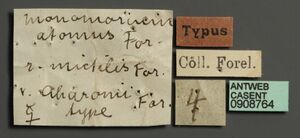 monomorium
atomus For.
r. mictilis For.
v. aharonii For.
☿ type
Typus
Cóll. Forel.
ANTWEB
CASENT
0908764